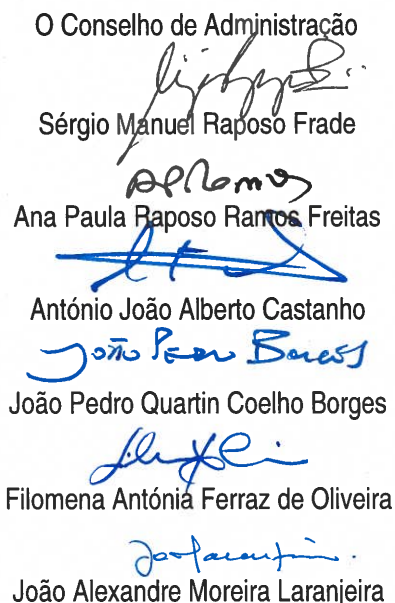 O Conselho de Administração
Sérgio Manuel Raposo Frade
AP Ramos
Ana Paula Raposo Ramos Freitas
António João Alberto Castanho
João Pedro Borges
João Pedro Quartin Coelho Borges
Filomena Antónia Ferraz de Oliveira
João Alexandre Moreira Laranjeira